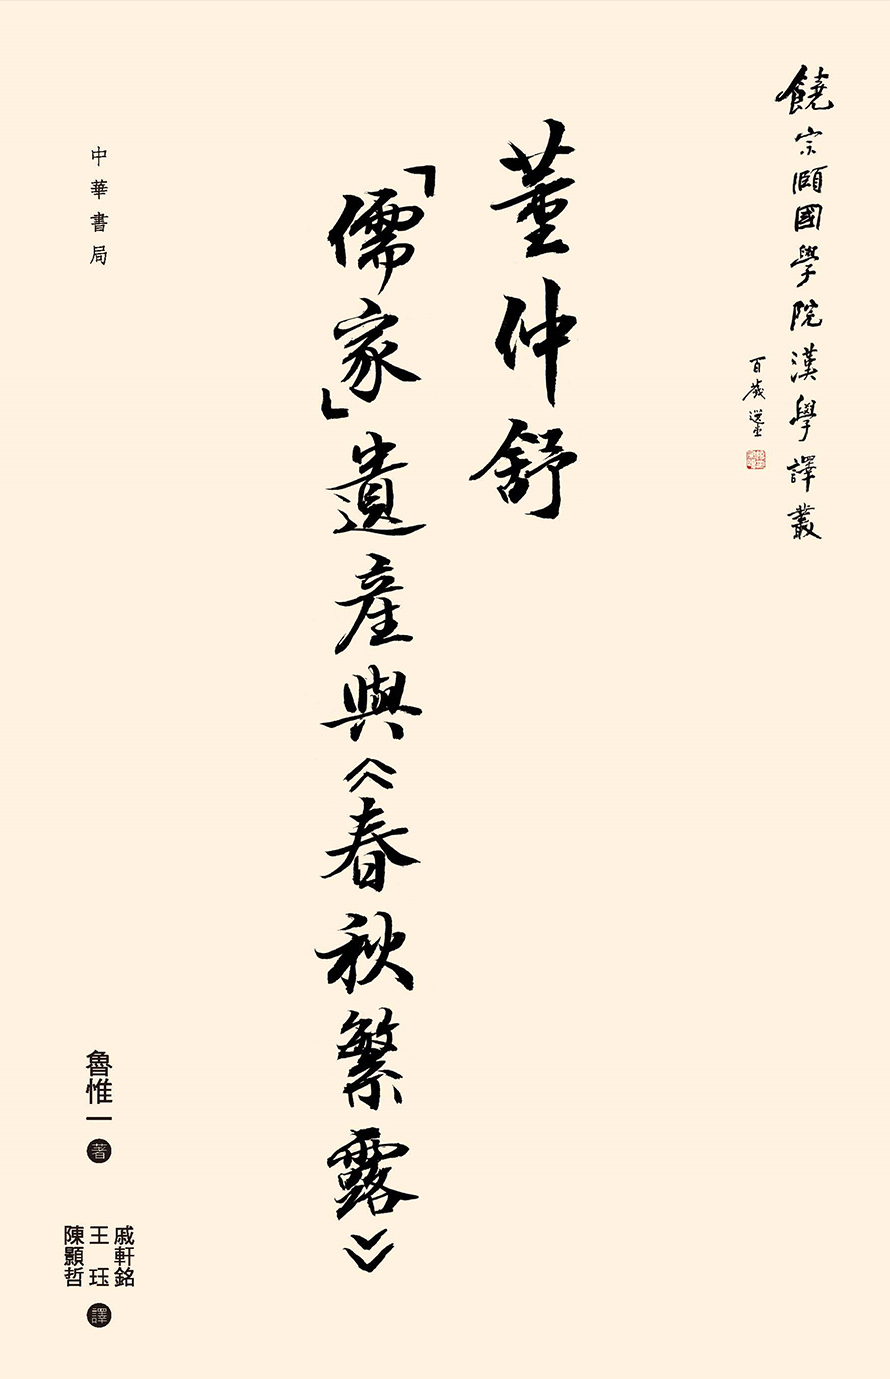 饒宗頤國學院漢學譯叢
百歲選堂
董仲舒
「儒家」遺產與《春秋繁露》
中華書局
魯惟一 著
戚軒銘
王珏
陳顥哲
譯